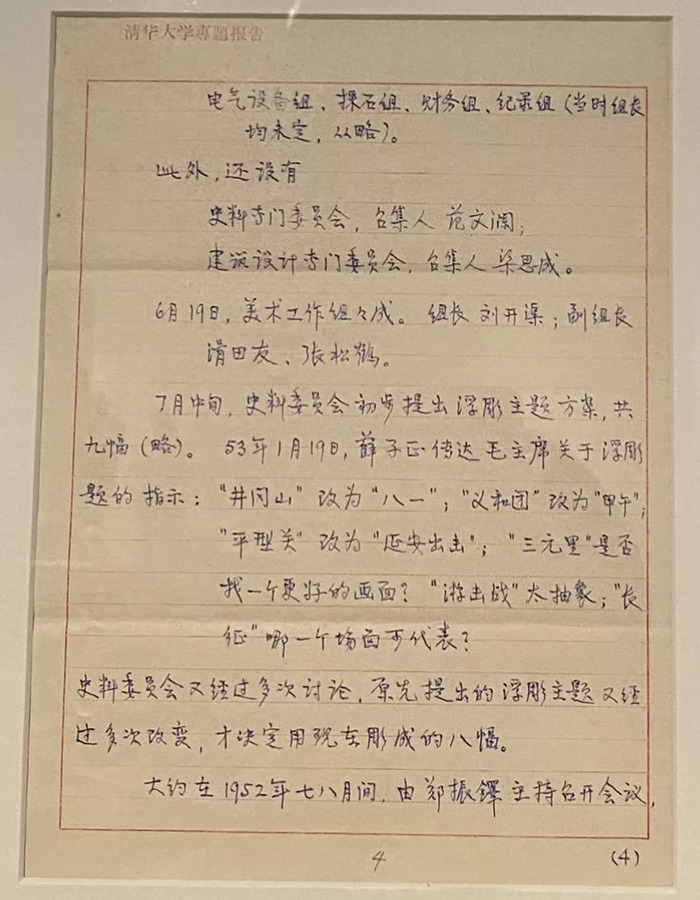 清华大学专题报告
电气设备组、採石组、财务组、纪录组(当时组长
均未定,从略)。
此外,还设有
史料专门委员会,召集人 范文澜;
建筑设计专门委员会,召集人 梁思成。
6月19日,美术工作组々成。组长 刘开渠;副组长
滑田友、张松鹤。
7月中旬,史料委员会初步提出浮彫主题方案,共
九幅(略)。53年1月19日,薛子正传达毛主席关于浮彫
题的指示:“井冈山”改为“八一”;“义和团”改为“甲午”;
“平型关”改为“延安出击”;“三元里”是否
找一个更好的画面?“游击战”太抽象;“长
征”哪一个场面可代表?
史料委员会又经过多次讨论,原先提出的浮彫主题又经
过多次改变,才决定用现在彫成的八幅。
大约在1952年七八月间,由郑振铎主持召开会议,
4
(4)